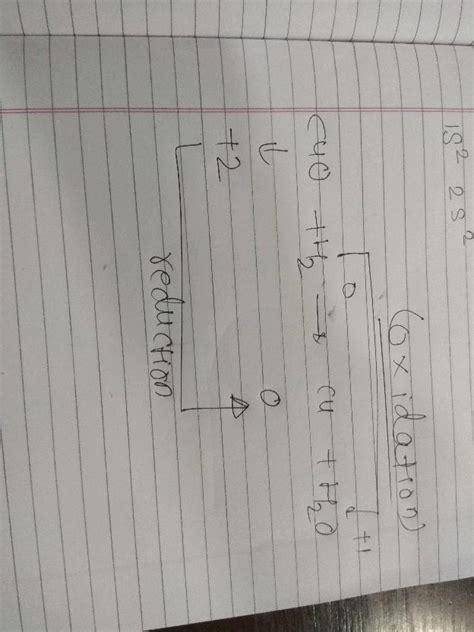 1s² 2s²
(oxidation)
0 +1
CuO + H₂ → Cu + H₂O
↓ 0
+2
reduction